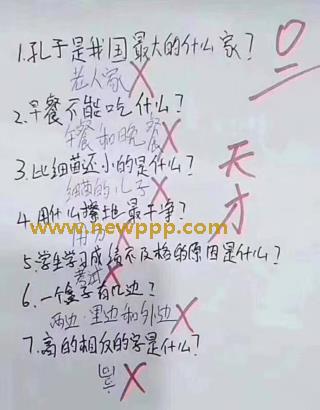 1.孔子是我国最大的什么家?
老人家
2.早餐不能吃什么?
午餐和晚餐
3.比细菌还小的是什么?
细菌的儿子
4.用什么擦地最干净?
用力
www.newppp.com
5.学生学习成绩不及格的原因是什么?
考试
6.一个盒子有几边?
两边.里边和外边
7.离的相反的字是什么?
0
天才